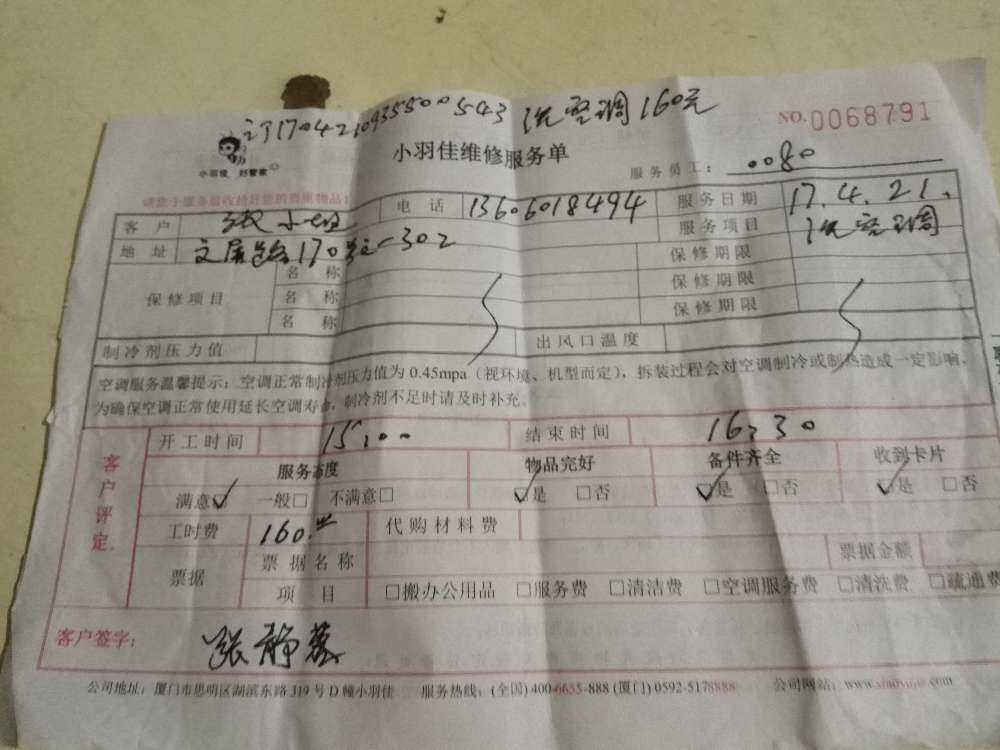 订1704210935500543 洗空调160元
NO.0068791
小羽佳 好管家
小羽佳维修服务单
服务员工: 0080
请您于服务前收拾好您的贵重物品!
客户 张小姐 电话 13606018494 服务日期 17.4.21.
地址 文屏路170号之一302 服务项目 洗空调
保修项目 名称 保修期限
名称 保修期限
名称 保修期限
制冷剂压力值 出风口温度
空调服务温馨提示:空调正常制冷剂压力值为0.45mpa(视环境、机型而定),拆装过程会对空调制冷或制热造成一定影响,
为确保空调正常使用延长空调寿命,制冷剂不足时请及时补充。
客户评定
开工时间 15:00 结束时间 16:30
服务态度 物品完好 备件齐全 收到卡片
满意☑ 一般□ 不满意□ ☑是 □否 ☑是 □否 ☑是 □否
工时费 160.- 代购材料费
票据 票据名称 票据金额
项目 □搬办公用品 □服务费 □清洁费 □空调服务费 □清洗费 □疏通费
客户签字: 张静
公司地址:厦门市思明区湖滨东路319号D幢小羽佳 服务热线:(全国)400-6655-888 (厦门)0592-5178888 公司网站:www.xiaoyujia.com